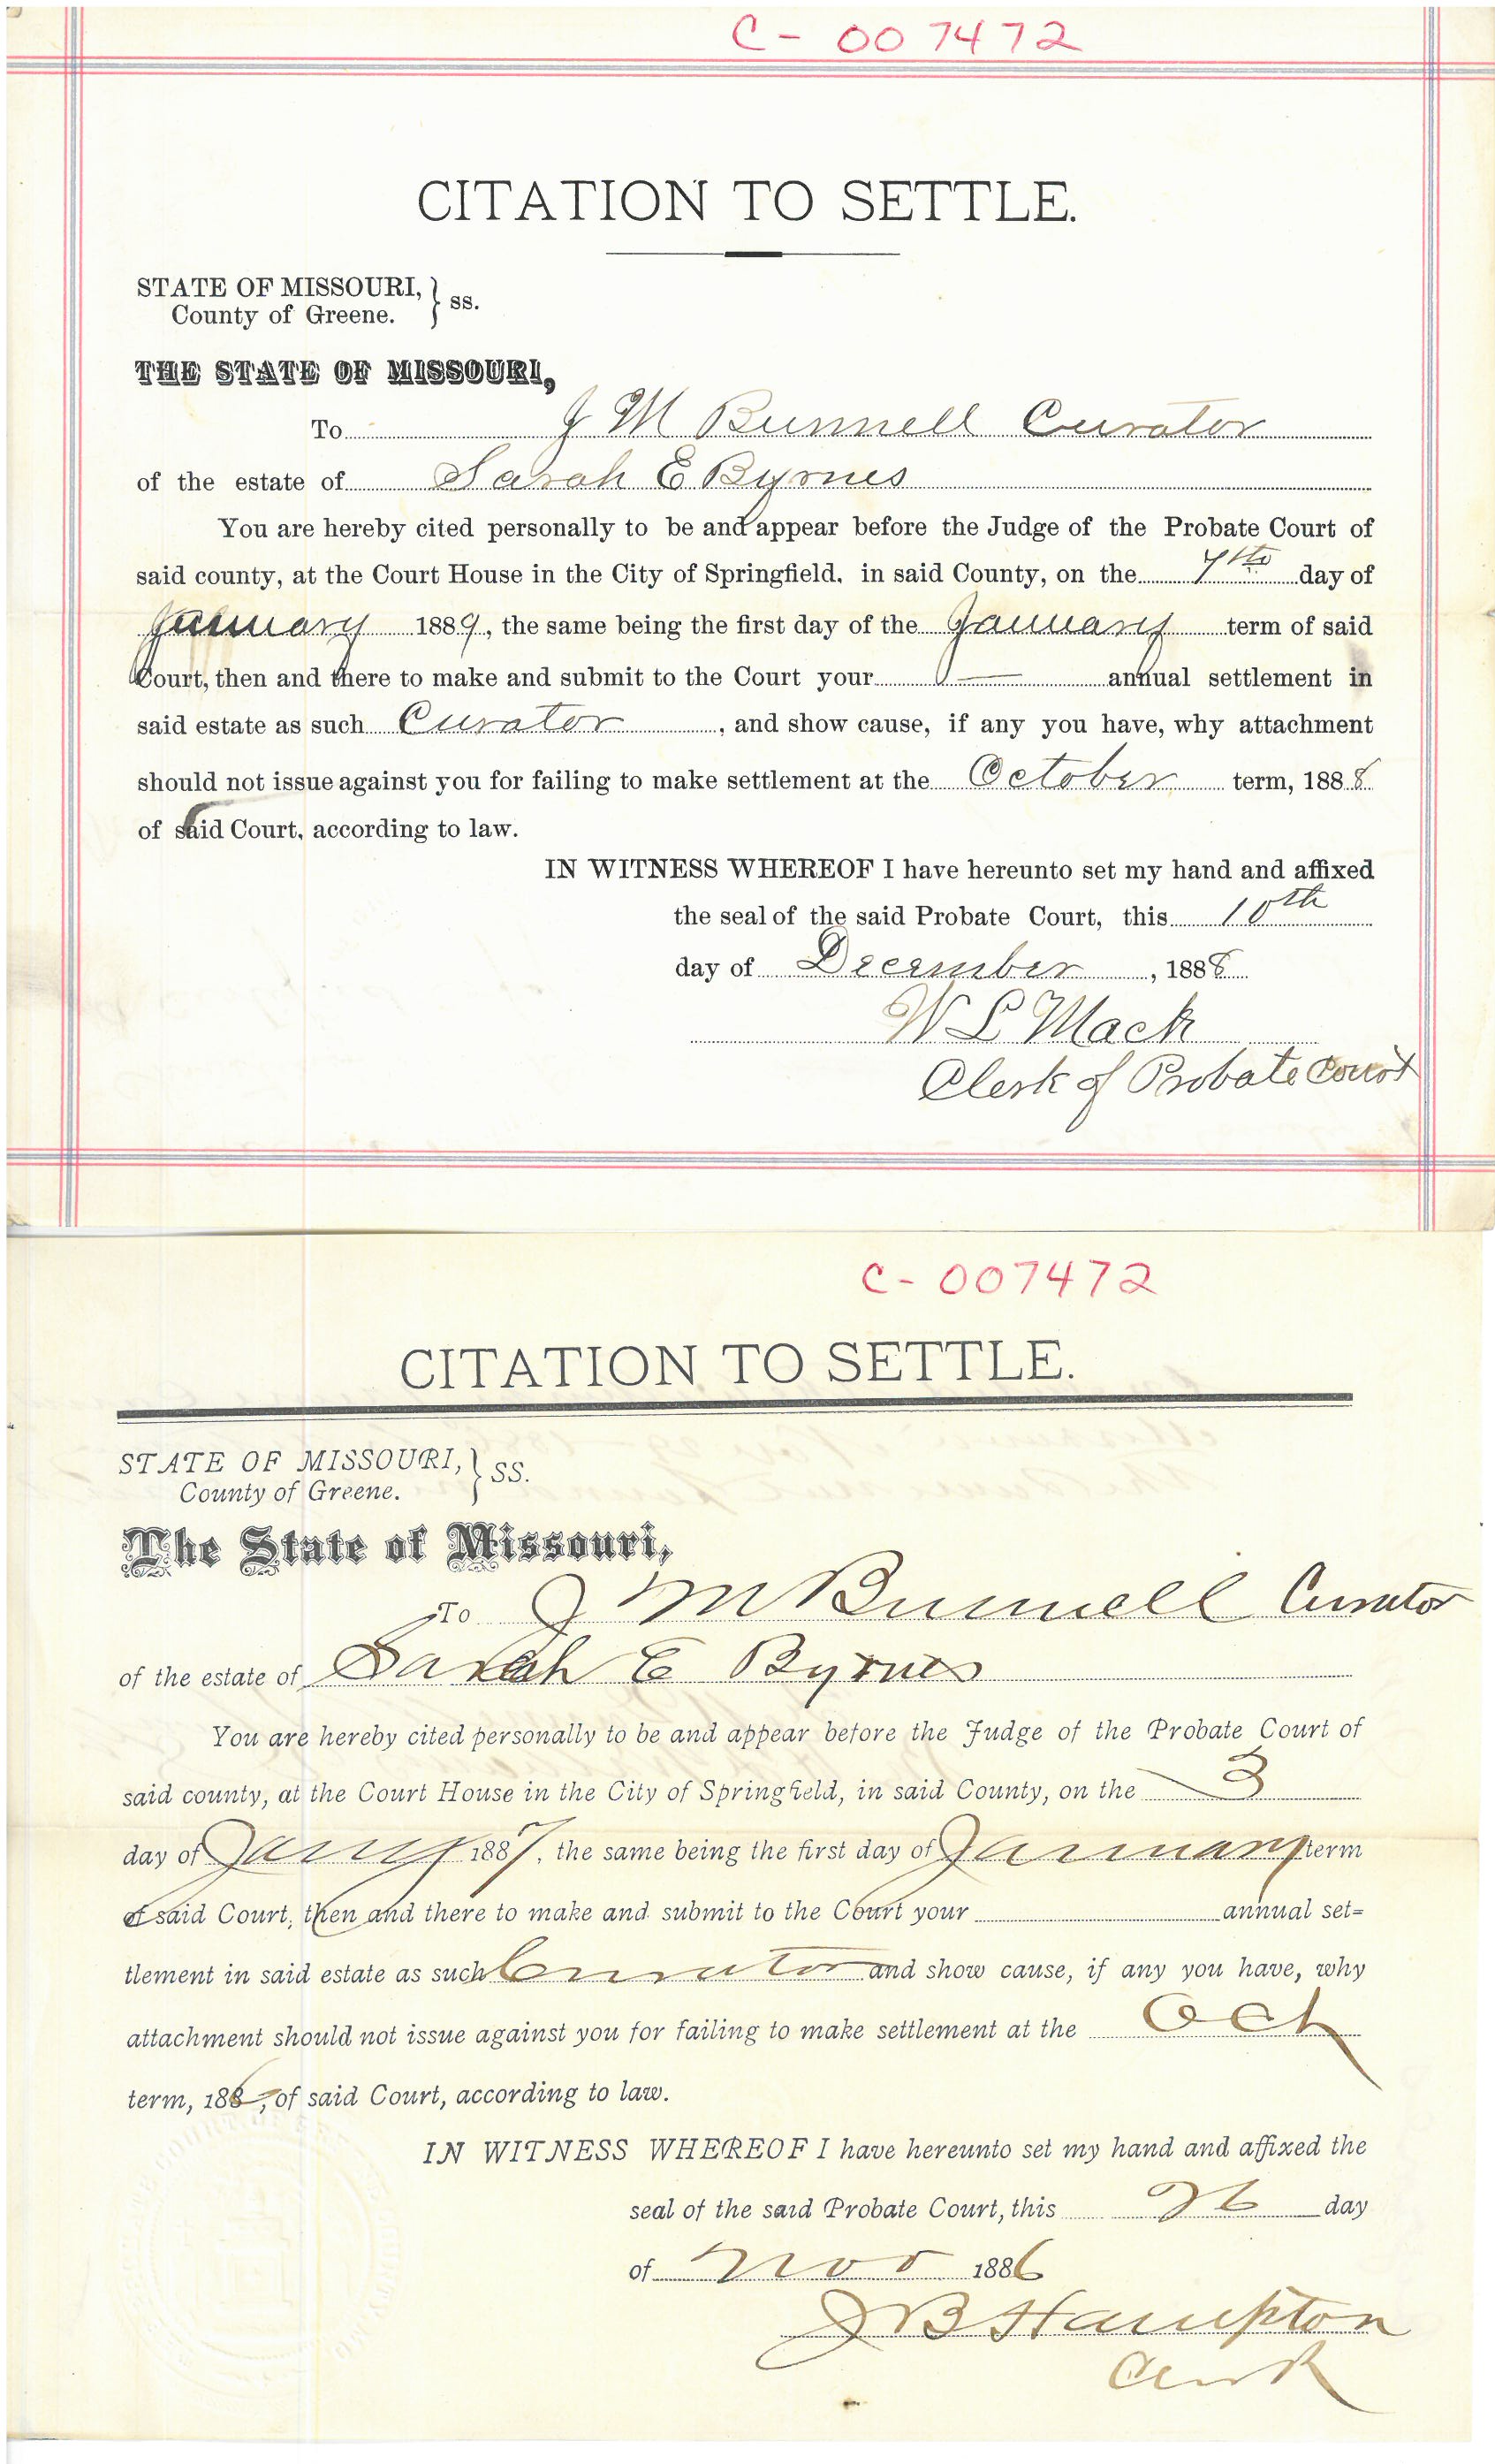 C- 007472
CITATION TO SETTLE.
STATE OF MISSOURI, } ss.
County of Greene.
THE STATE OF MISSOURI,
To J M Bunnell Curator
of the estate of Sarah E Byrnes
You are hereby cited personally to be and appear before the Judge of the Probate Court of
said county, at the Court House in the City of Springfield, in said County, on the 7th day of
January 1889, the same being the first day of the January term of said
Court, then and there to make and submit to the Court your — annual settlement in
said estate as such Curator, and show cause, if any you have, why attachment
should not issue against you for failing to make settlement at the October term, 1888
of said Court, according to law.
IN WITNESS WHEREOF I have hereunto set my hand and affixed
the seal of the said Probate Court, this 10th
day of December, 1888
W L Mack
Clerk of Probate Court
C- 007472
CITATION TO SETTLE.
STATE OF MISSOURI, } SS.
County of Greene.
The State of Missouri,
To J M Bunnell Curator
of the estate of Sarah E Byrnes
You are hereby cited personally to be and appear before the Judge of the Probate Court of
said county, at the Court House in the City of Springfield, in said County, on the 3
day of Jany 1887, the same being the first day of January term
of said Court, then and there to make and submit to the Court your annual set=
tlement in said estate as such Curator and show cause, if any you have, why
attachment should not issue against you for failing to make settlement at the Oct
term, 1886, of said Court, according to law.
IN WITNESS WHEREOF I have hereunto set my hand and affixed the
seal of the said Probate Court, this 26 day
of Nov 1886
J B Hampton
Clerk